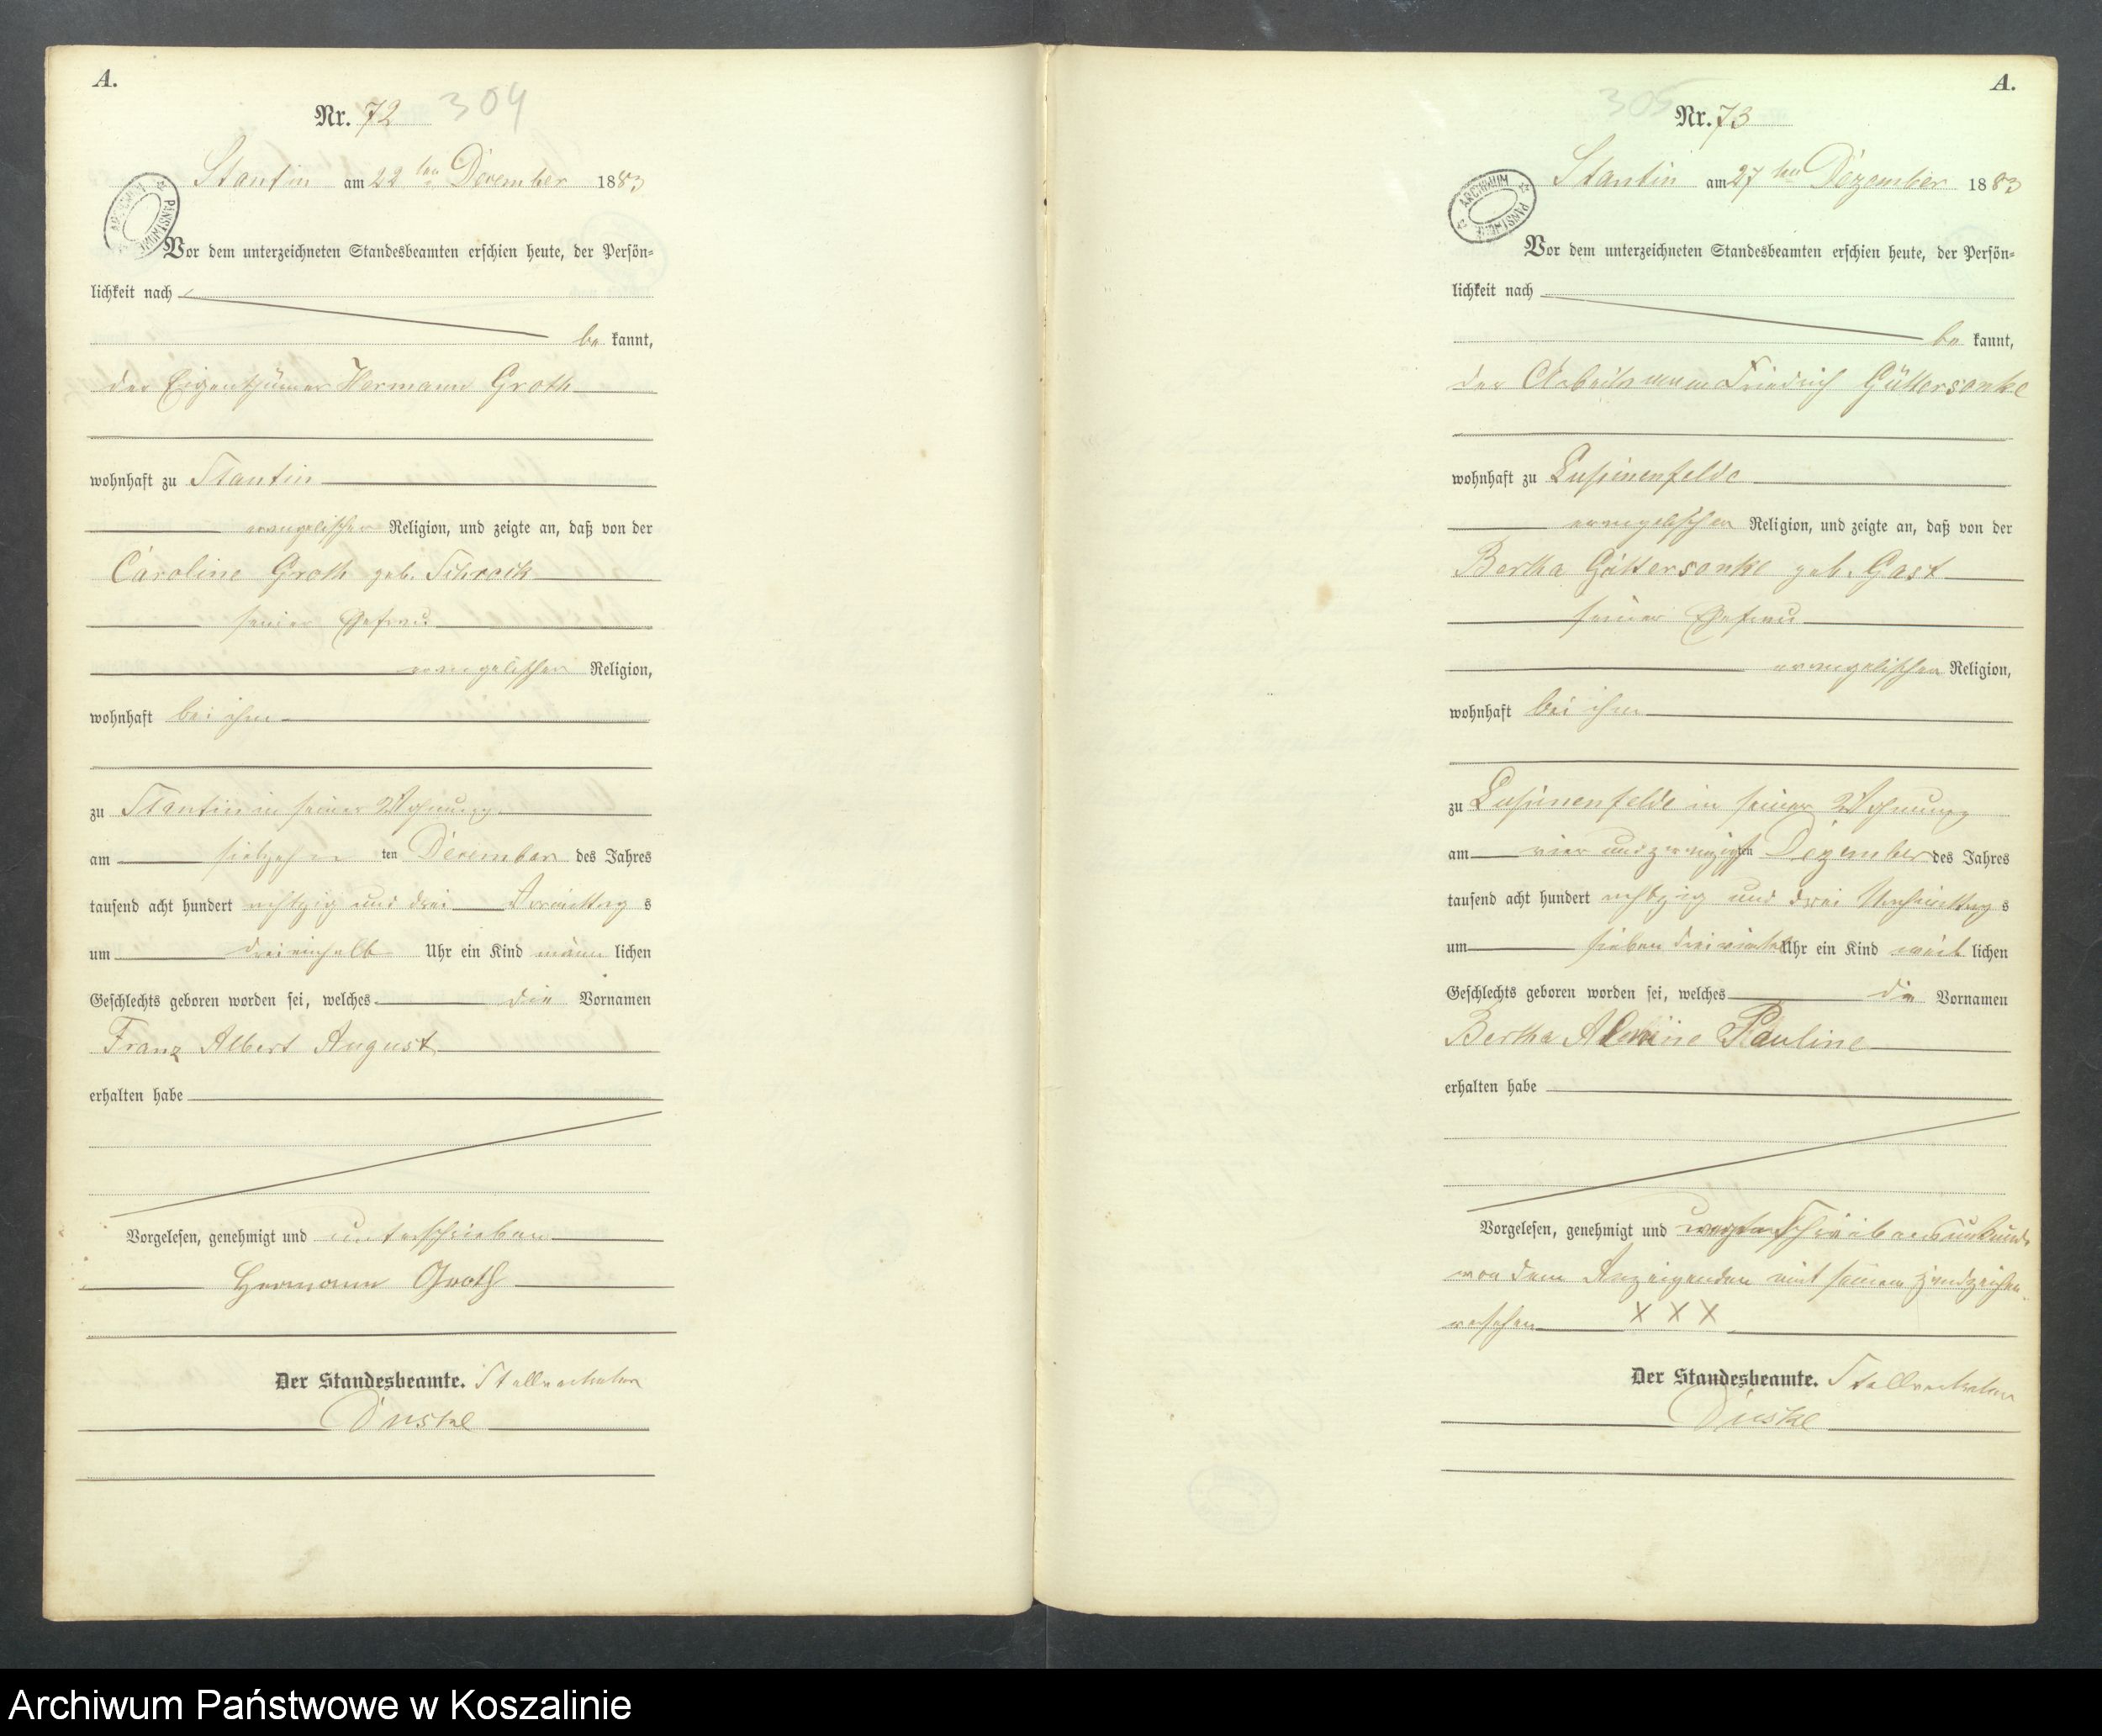 A.
Nr. 72 304
Stantin am 22ten December 1883
Vor dem unterzeichneten Standesbeamten erschien heute, der Persön-
lichkeit nach
be kannt,
der Eigenthümer Hermann Groth
wohnhaft zu Stantin
evangelischer Religion, und zeigte an, daß von der
Caroline Groth geb. Schrock
seiner Ehefrau
evangelischer Religion,
wohnhaft bei ihm
zu Stantin in seiner Wohnung
am siebzehn ten December des Jahres
tausend acht hundert achtzig und drei Vormittag s
um dreieinhalb Uhr ein Kind männ lichen
Geschlechts geboren worden sei, welches die Vornamen
Franz Albert August
erhalten habe
Vorgelesen, genehmigt und unterschrieben
Hermann Groth
Der Standesbeamte. Stellvertreter
ARCHIWUM PAŃSTWOWE
A.
305 Nr. 73
Stantin am 27ten Dezember 1883
Vor dem unterzeichneten Standesbeamten erschien heute, der Persön-
lichkeit nach
be kannt,
der Arbeitsmann Friedrich Güttersonke
wohnhaft zu
evangelischer Religion, und zeigte an, daß von der
Bertha Güttersonke geb. Gast
seiner Ehefrau
evangelischer Religion,
wohnhaft bei ihm
zu in seiner Wohnung
am vier und zwanzigsten Dezember des Jahres
tausend acht hundert achtzig und drei Nachmittag s
um sieben dreiviertel Uhr ein Kind weib lichen
Geschlechts geboren worden sei, welches die Vornamen
Bertha Pauline
erhalten habe
Vorgelesen, genehmigt und
von dem Anzeigenden mit seinem Handzeichen
versehen X X X
Der Standesbeamte. Stellvertreter
ARCHIWUM PAŃSTWOWE
Archiwum Państwowe w Koszalinie